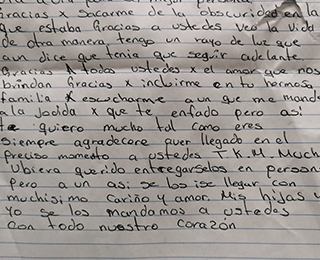 Gracias x sacarme de la obscuridad en la
que estaba Gracias a ustedes veo la vida
de otra manera, tengo un rayo de luz que
aun dice que tenia que seguir adelante.
Gracias a todos ustedes x el amor que nos
brindan Gracias x incluirme en tu hermosa
familia x escucharme aun que me mande
a la Jodida x que te enfado pero asi
te quiero mucho tal como eres
siempre agradecere aver llegado en el
preciso momento a ustedes T.K.M. Much
Ubiera querido entregarselos en person
Pero a un asi se los ise llegar con
muchisimo Cariño y amor. Mis hijas y
yo se los mandamos a ustedes
con todo nuestro corazón